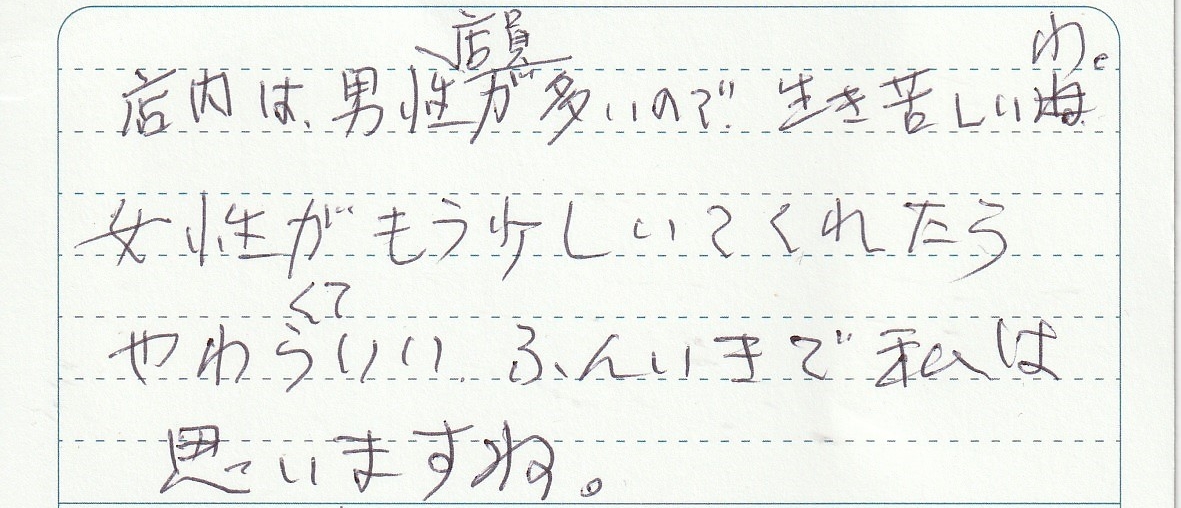 店内は、男性店員が多いので生き苦しいわ。
女性がもう少しいてくれたら
やわらくていい。ふんいきで私は
思いますね。